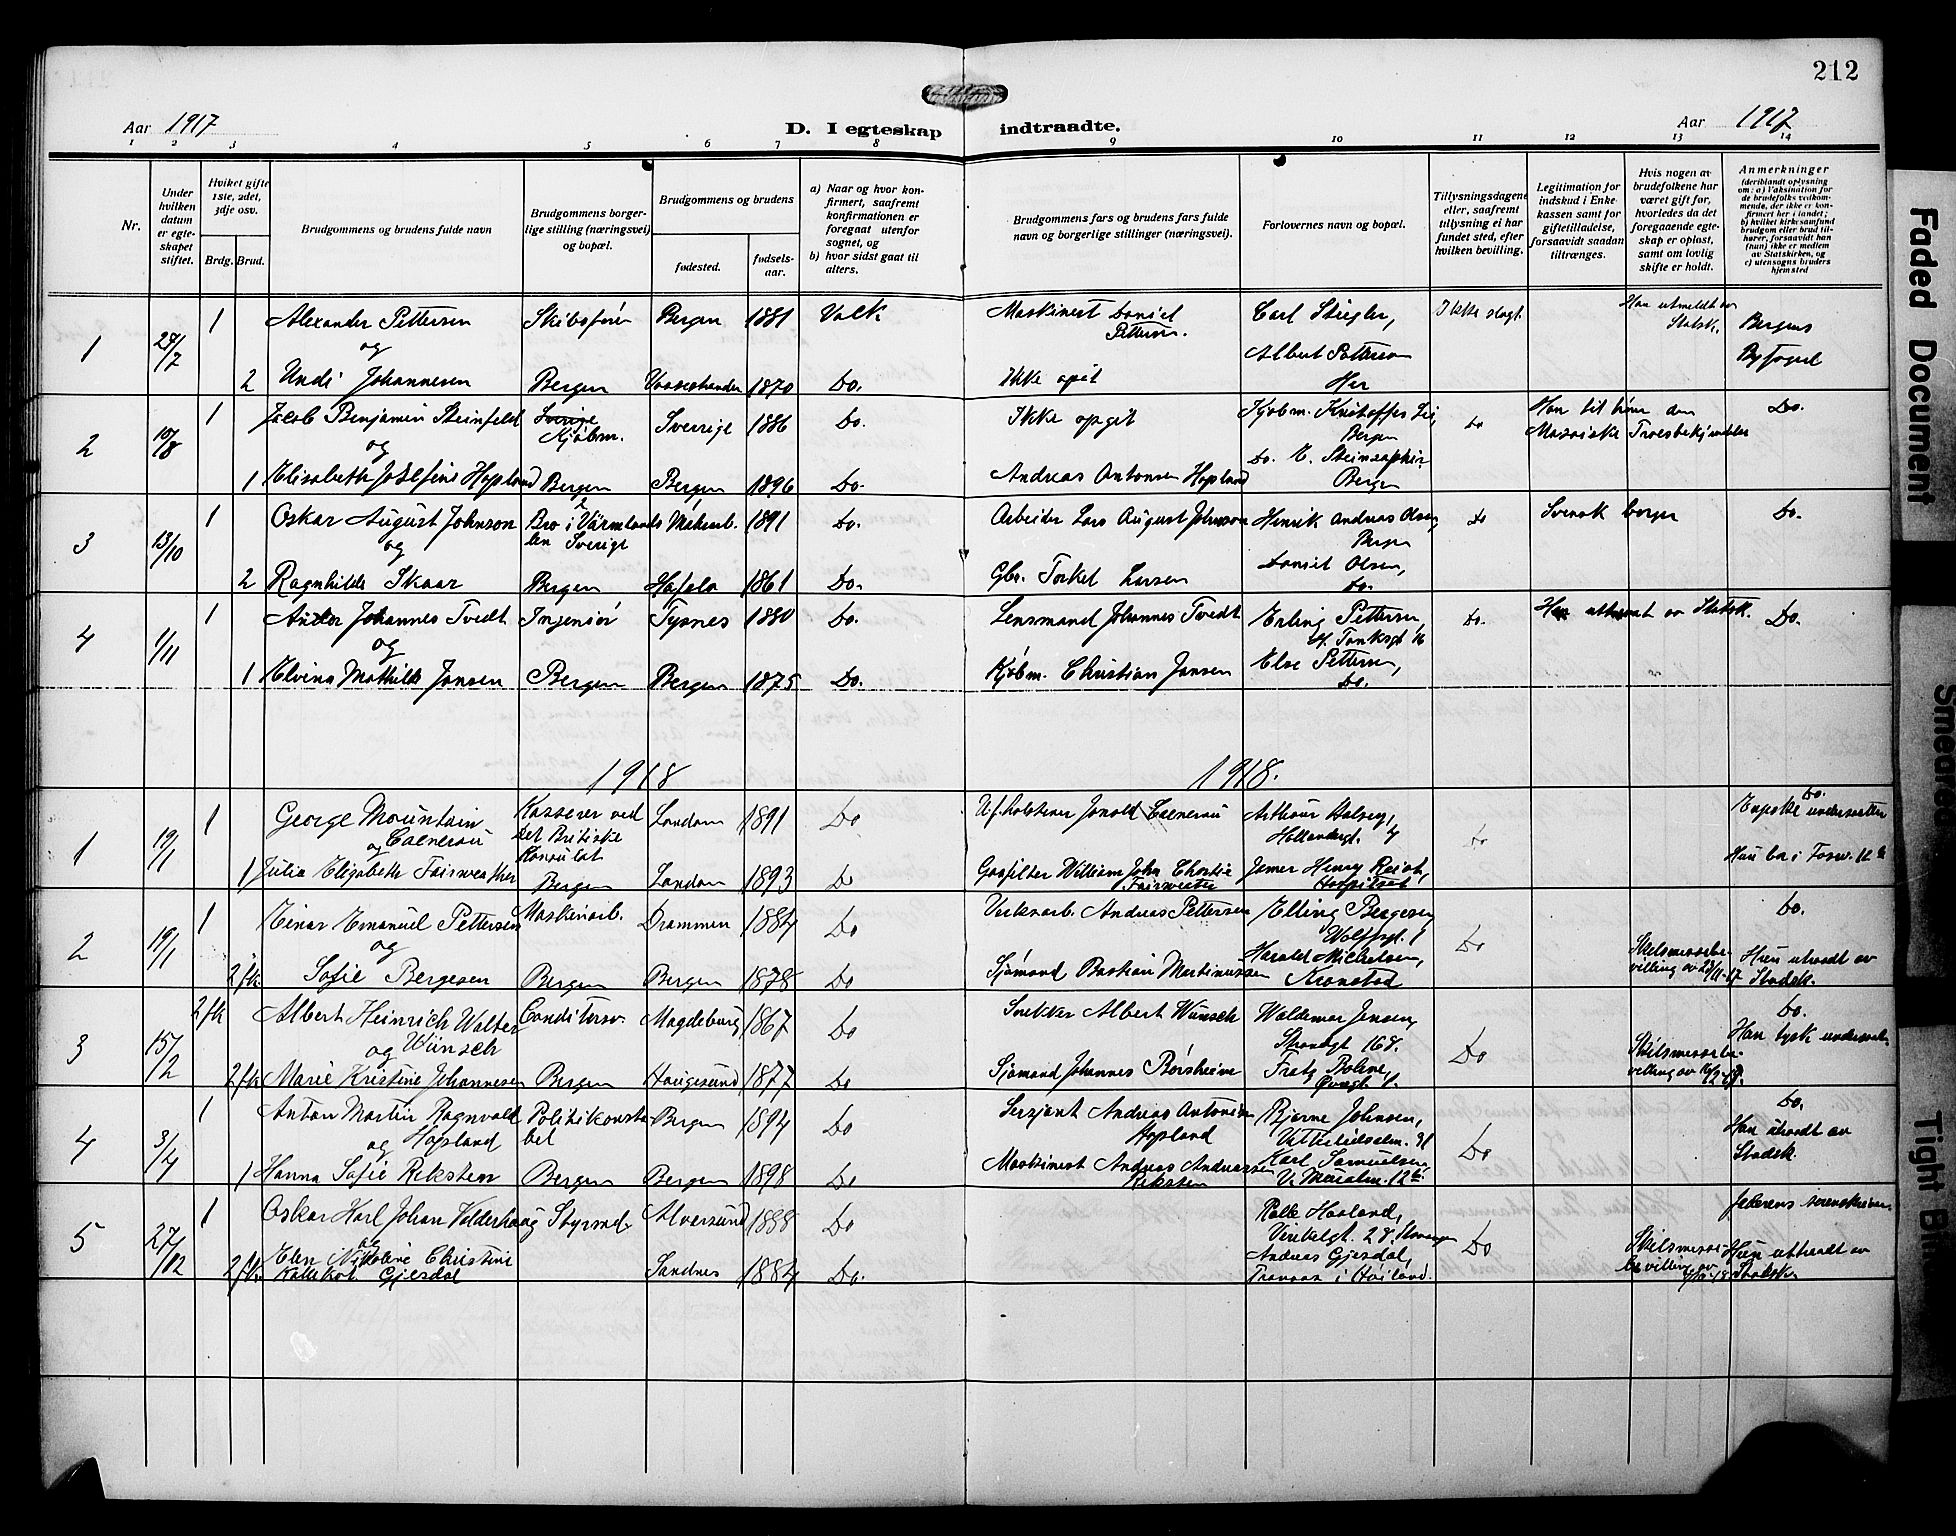 212
Aar 1917
D. I egteskap indtraadte.
Aar 1917
1 2 3 4 5 6 7 8 9 10 11 12 13 14
Nr.
Under hvilken datum er egte-skapet stiftet.
Hvilket gifte 1ste, 2det, 3dje osv.
Brdg. Brud.
Brudgommens og brudens fulde navn
Brudgommens borger-lige stilling (næringsvei) og bopæl.
Brudgommens og brudens
fødested.
fødsels-aar.
a) Naar og hvor kon-firmert, saafremt konfirmationen er foregaat utenfor sognet, og
b) hvor sidst gaat til alters.
Brudgommens fars og brudens fars fulde navn og borgerlige stillinger (næringsvei).
Forlovernes navn og bopæl.
Tillysningsdagene eller, saafremt tillysning ei har fundet sted, efter hvilken bevilling.
Legitimation for indskud i Enke-kassen samt for giftetilladelse, forsaavidt saadan tiltrænges.
Hvis nogen av brudefolkene har været gift før, hvorledes da det foregaaende egte-skap er opløst, samt om lovlig skifte er holdt.
Anmerkninger
(deriblandt oplysning om: a) Vaksination for de brudefolks vedkom-mende, der ikke er kon-firmert her i landet; b) hvilket kirkesamfund brudgom eller brud til-hører, forsaavidt han (hun) ikke er medlem av Statskirken, og c) utensogns bruders hjemsted
1 27/7 1 Alexander Pettersen Skibsfører Bergen 1881 Valk Maskinist Daniel Pettersen. Carl Stiegler, Ikke slagt. Han utmeldt av Statsk. Bergens Byfoged
og Albert Pettersen
2 Undi Johannesen Bergen Vossestranden 1870 Do. Ikke opgit Her
2 10/8 1 Jacob Benjamin Steinfeldt Sverige Kjøbm. Sverrige 1886 Do. Ikke opget Kjøbm. Kristoffer Lie, Bergen Do Han til hører den Mosaiske Troesbekjendelse Do.
og Do. E. Steinsaphir
1 Elisabeth Josefine Hopland Bergen Bergen 1896 Do. Andreas Antonsen Hopland Bergen
3 13/10 1 Oskar August Johnson Bro i Värmlands len Sverige 1891 Do. Arbeider Lars August Johnson Henrik Andreas Olsen, Bergen Do Svensk borger Do.
og Daniel Olsen,
2 Ragnhilde Skaar Bergen Hafslo 1861 Do. Gbr. Torkel Larsen Do.
4 1/11 1 Johannes Tvedt Ingeniør Tysnes 1880 Do. Lensmand Johannes Tvedt Erling Pettersen, Do. Han uttraadt av Statsk. Do.
og Else Pettersen,
1 Elvina Mathilde Jansen Bergen Bergen 1875 Do. Kjøbm. Christian Jansen Do.
1918 1918.
1 19/1 1 George Mountain Kasserer ved det Britiske Konsulat London 1891 Do Arthur Halsey, Do Do.
og
1 Julia Elizabeth Fairweather Bergen London 1893 Do Gasfitter William John Christie Fairweather James Henry
2 19/1 1 Einar Emanuel Pettersen Maskinarb. Drammen 1884 Do Verksarb. Andreas Pettersen Elling Bergesen Wolffsgt. 1 Do Do.
og Harald Michelsen,
2 fk Sofie Bergesen Bergen Bergen 1878 Do Sjømand Bastian Martinussen Kronstad Skilsmissebe-villing av Hun utraadt av Statsk.
3 15/2 2 fk Albert Heinrich Walter Conditorsv. Magdeburg 1867 Do Snekker Albert Wünsch Waldemar Jensen, Strandgt 168. Do Do.
og Wünsch Han tysk undersaat
2 fk Marie Kristine Johannesen Bergen Haugesund 1877 Do Sjømand Johannes Børsheim Skilsmissebe-villing av
4 3/4 1 Anton Martin Ragnvald Politikonsta-bel Bergen 1894 Do Serjant Andreas Antonsen Hopland Bjarne Johnsen, Do Do.
og Hopland Karl Samuelsen Han utraadt av Statsk.
1 Hanna Sofie Reksten Bergen Bergen 1898 Do Maskinist Andreas Andreassen Reksten
5 27/12 1 Oskar Karl Johan Valderhaug Styrmd. Alversund 1888 Do Rolle Haaland, Do Jæderens sorenskriver
og Andreas Gjesdal,
2 fk Elen Nikoline Christine Gjesdal Sandnes 1884 Do. i Høiland. Skilsmisse-bevilling av Hun uttraadt av Statsk.
Faded Document
Smeared
Tight Bin